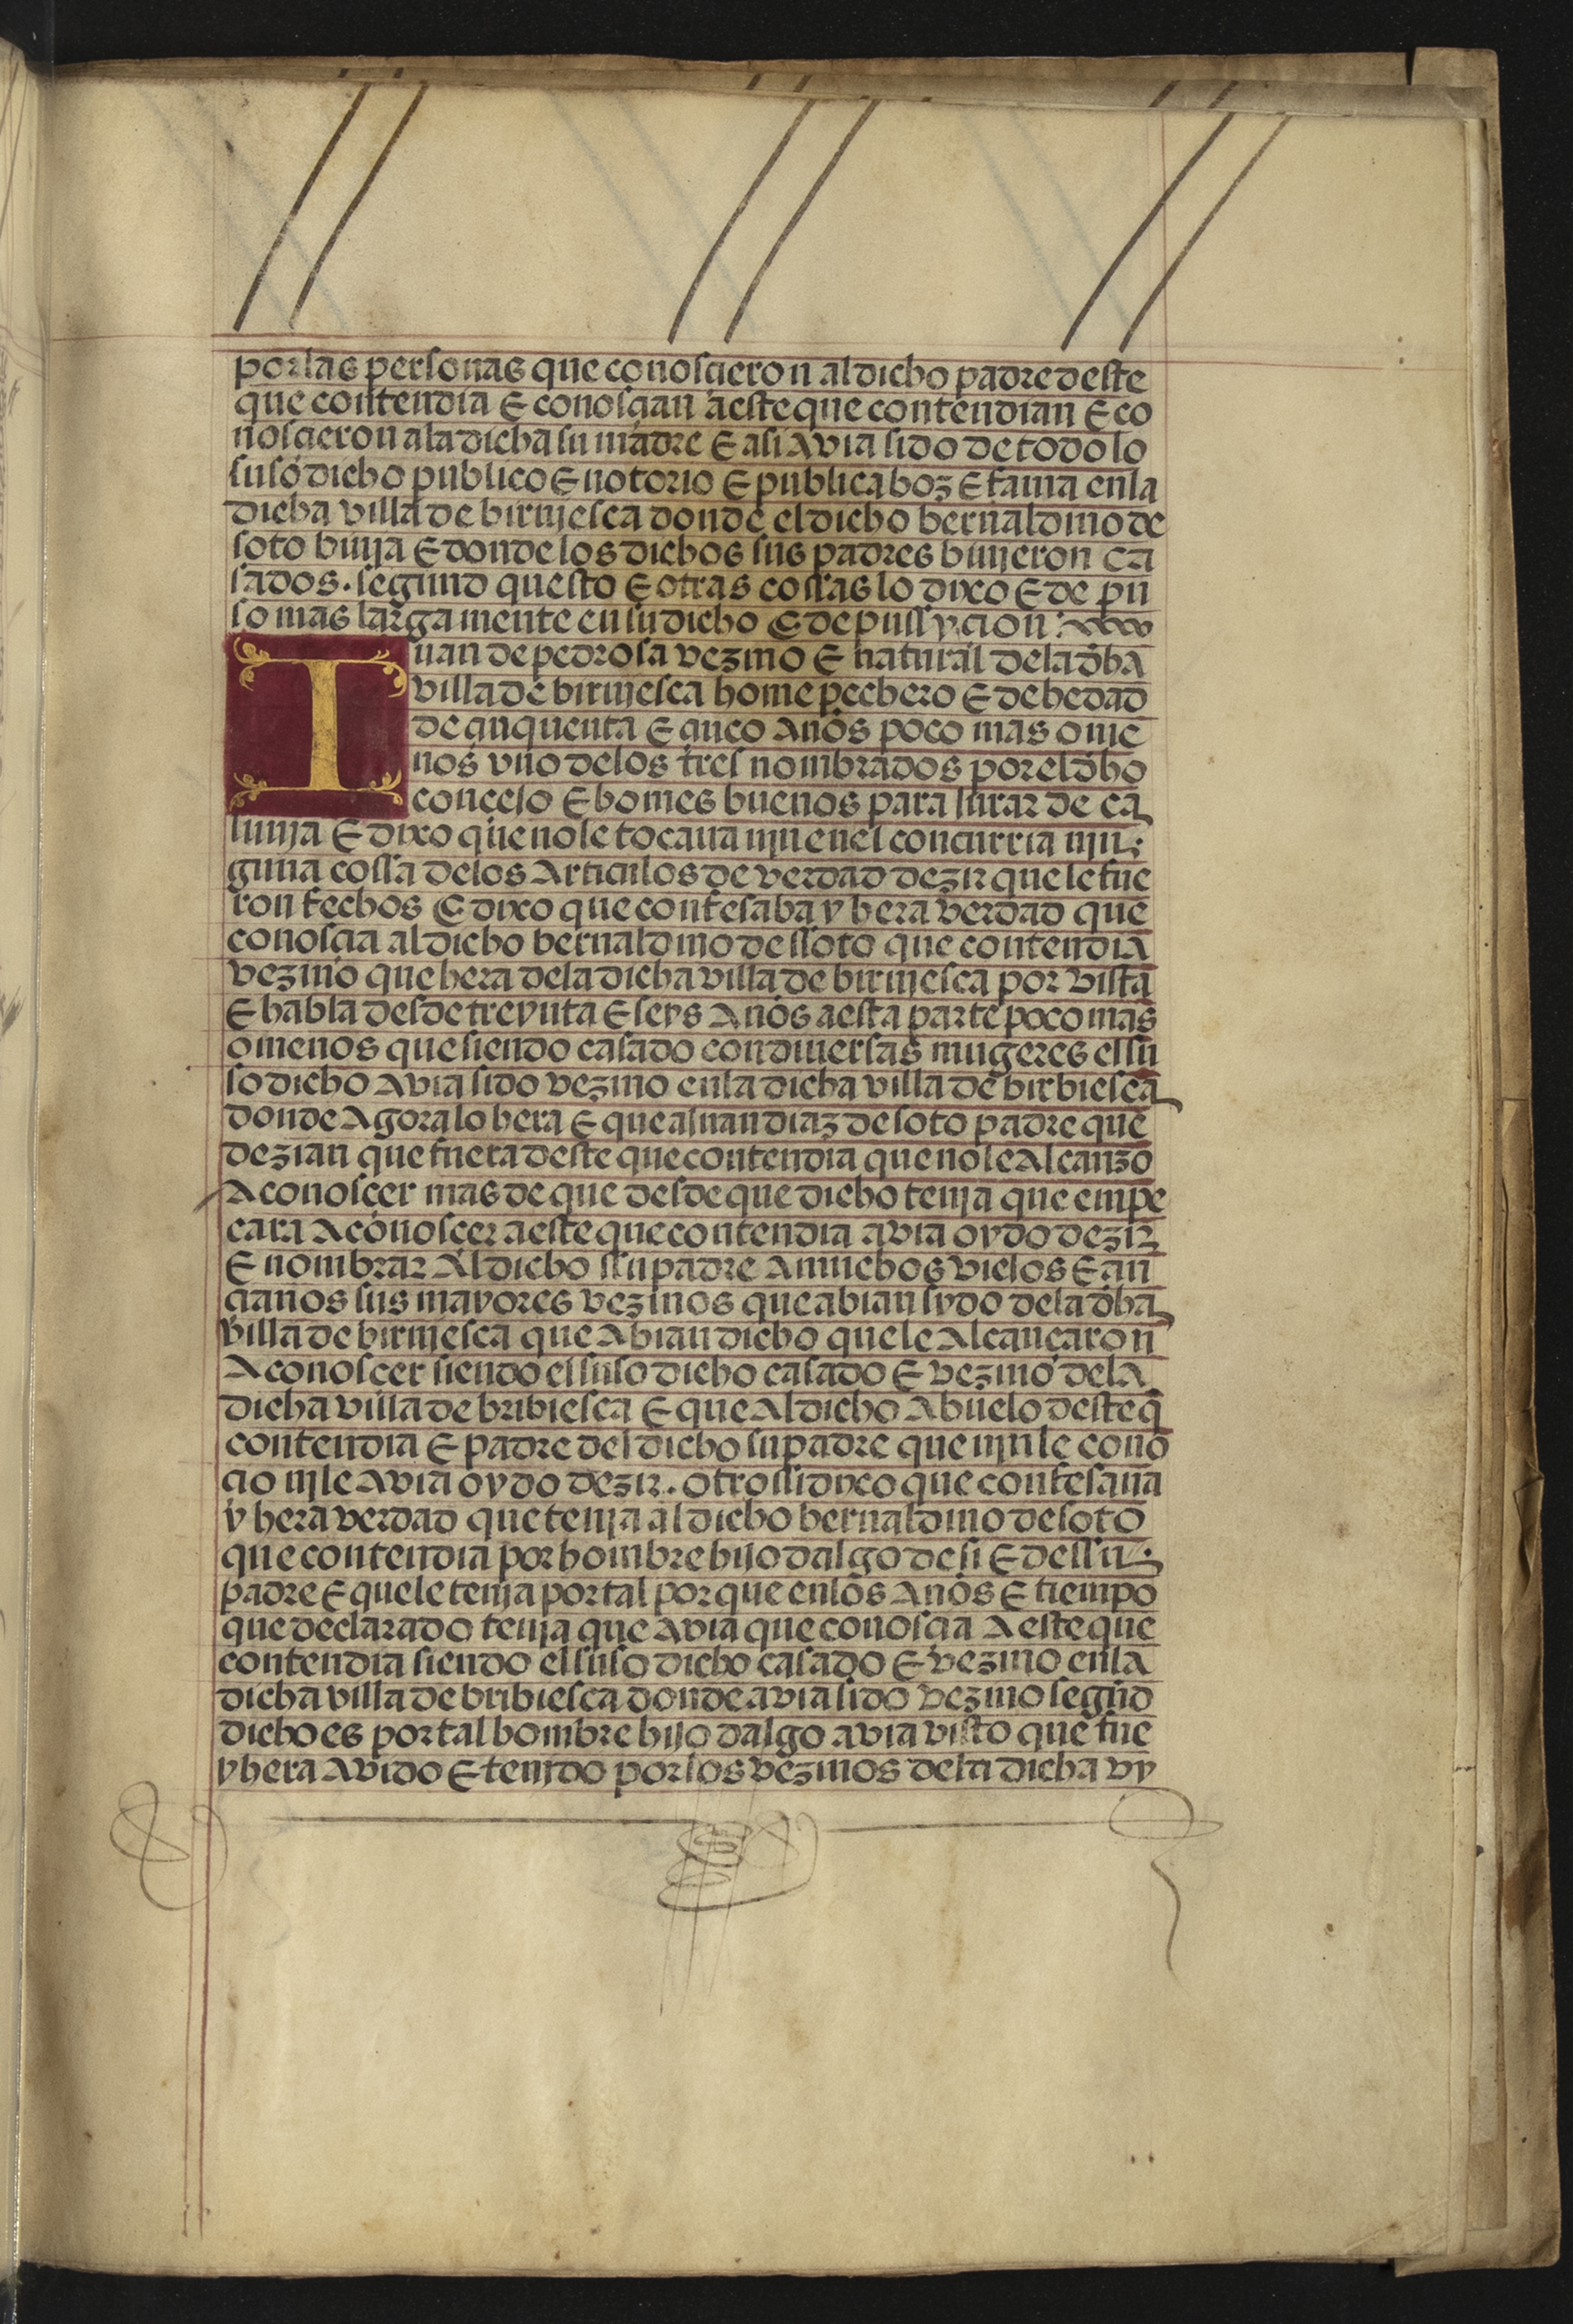 por las personas que conosçieron al dicho padre deste
que contendia E conosçian a este que contendian E co
nosçieron a la dicha su madre E asi avia sido de todo lo
suso dicho publico E notorio E publica boz E fama en la
dicha villa de birujesca donde el dicho bernaldino de
soto biuja E donde los dichos sus padres biujeron ca
sados . segund questo E otras cossas lo dixo E de pu
so mas larga mente en su dicho E depussyçion :
Iuan de pedrosa vezino E natural dela dha
villa de birujesca home pechero E de hedad
de çinquenta E çinco años poco mas o me
nos vno delos tres nombrados por el dho
concejo E homes buenos para jurar de ca
lunja E dixo que no le tocaua nj en el concurria njn
guna cossa delos Articulos de verdad dezir que le fue
ron fechos E dixo que confesaba y hera verdad que
conosçia al dicho bernaldino de ssoto que contendia
vezino que hera dela dicha villa de birujesca por vista
E habla desde treynta E seys Años a esta parte poco mas
o menos que siendo casado con diuersas mugeres el su
so dicho Avia sido vezino en la dicha villa de birbiesca
donde Agora lo hera E que a juan diaz de soto padre que
dezian que fuera deste que contendia que no le Alcanzo
A conosçer mas de que desde que dicho tenja que empe
cara A conosçer a este que contendia avia oydo dezir
E nombrar Al dicho ssu padre A muchos viejos E an
çianos sus mayores vezinos que abian sydo dela dha
villa de birujesca que Abian dicho que le Alcancaron
A conosçer siendo el suso dicho casado E vezino dela
dicha villa de bribiesca E que Al dicho Abuelo deste q̃
contendia E padre del dicho su padre que njn le cono
çio nj le Avia oydo dezir . otrossi dixo que confesaua
y hera verdad que tenja al dicho bernaldino de soto
que contendia por hombre hijo dalgo de si E de ssu
padre E que le tenja por tal por que en los Años E tiempo
que declarado tenja que Avia que conosçia A este que
contendia siendo el suso dicho casado E vezino en la
dicha villa de bribiesca donde avia sido vezino segũd
dicho es por tal hombre hijo dalgo avia visto que fue
y hera Avido E tenjdo por los vezinos dela dicha vy